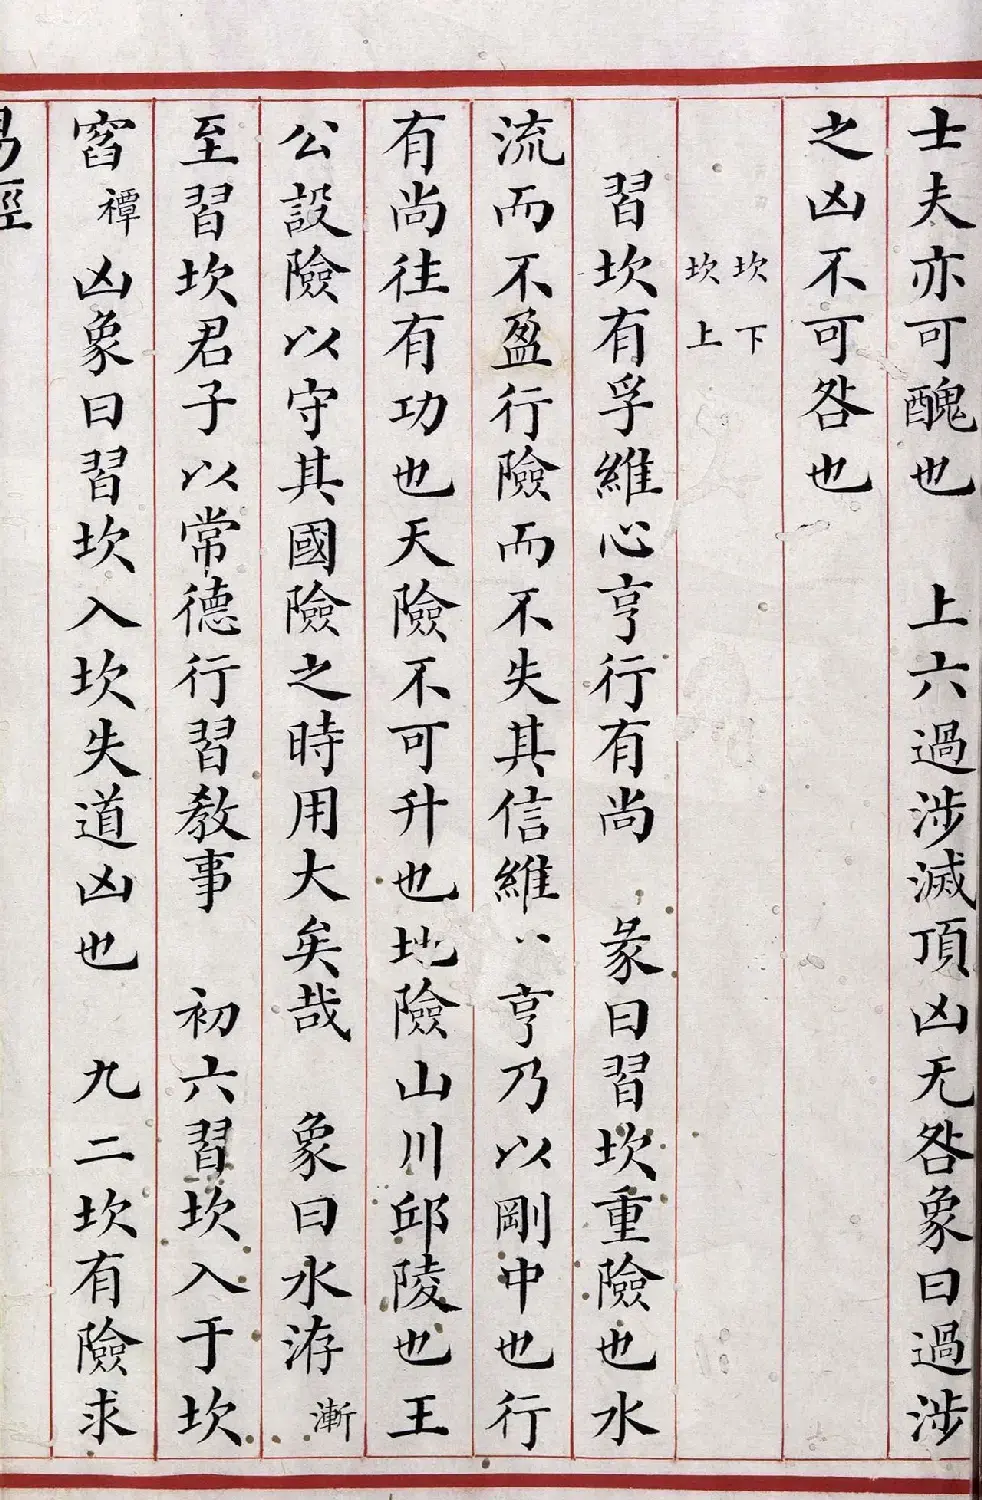 士夫亦可醜也　上六過涉滅頂凶无咎象曰過涉
之凶不可咎也
坎下
坎上
習坎有孚維心亨行有尚　彖曰習坎重險也水
流而不盈行險而不失其信維亨乃以剛中也行
有尚往有功也天險不可升也地險山川邱陵也王
公設險以守其國險之時用大矣哉　象曰水洊漸
至習坎君子以常德行習敎事　初六習坎入于坎
窞禫凶象曰習坎入坎失道凶也　九二坎有險求
易經